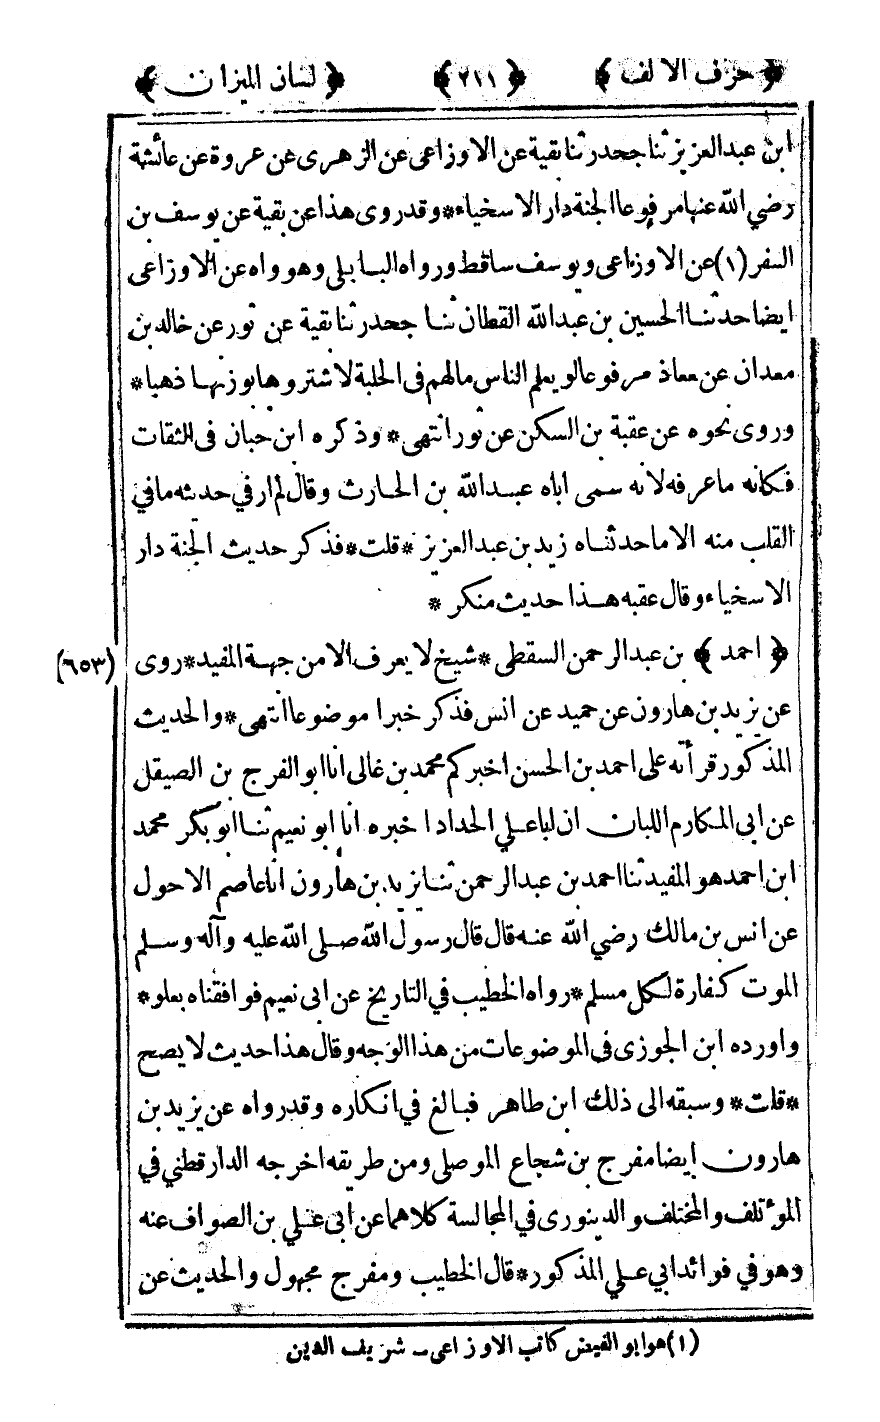 ﴿ حرف الالف ﴾ ﴿ ٢١١ ﴾ ﴿ لسان الميزان ﴾
ابن عبدالعزيز ثنا جحدر ثنا بقية عن الاوزاعى عن الزهرى عن عروة عن عائشة
رضي الله عنها مرفوعا الجنة دار الاسخياء * وقد روى هذا عن بقية عن يوسف بن
السفر (١) عن الاوزاعى ويوسف ساقط ورواه البابلى وهو واه عن الاوزاعى
ايضا حدثنا الحسين بن عبدالله القطان ثنا جحدر ثنا بقية عن ثور عن خالد بن
معدان عن معاذ مرفوعا لو يعلم الناس مالهم فى الحلبة لاشتروها بوزنها ذهبا *
وروى نحوه عن عقبة بن السكن عن ثور انتهى * وذكره ابن حبان فى الثقات
فكانه ماعرفه لانه سمى اباه عبدالله بن الحارث وقال لم ار في حديثه مافي
القلب منه الا ماحدثناه زيد بن عبدالعزيز * قلت * فذكر حديث الجنة دار
الاسخياء وقال عقبه هذا حديث منكر *
﴿ احمد ﴾ بن عبدالرحمن السقطى * شيخ لا يعرف الا من جهة المفيد * روى (٦٥٣)
عن يزيد بن هارون عن حميد عن انس فذكر خبرا موضوعا انتهى * والحديث
المذكور قرأته على احمد بن الحسن اخبركم محمد بن غالى انا ابو الفرج بن الصيقل
عن ابى المكارم اللبان ان اباعلي الحداد اخبره انا ابو نعيم ثنا ابو بكر محمد
ابن احمد هو المفيد ثنا احمد بن عبدالرحمن ثنا يزيد بن هارون انا عاصم الاحول
عن انس بن مالك رضي الله عنه قال قال رسول الله صلى الله عليه وآله وسلم
الموت كفارة لكل مسلم * رواه الخطيب في التاريخ عن ابى نعيم فوافقناه بعلو *
واورده ابن الجوزى فى الموضوعات من هذا الوجه وقال هذا حديث لا يصح
* قلت * وسبقه الى ذلك ابن طاهر فبالغ في انكاره وقد رواه عن يزيد بن
هارون ايضا مفرج بن شجاع الموصلى ومن طريقه اخرجه الدارقطني في
المؤتلف والمختلف والدينورى في المجالسة كلاهما عن ابى علي بن الصواف عنه
وهو في فوائد ابي علي المذكور * قال الخطيب ومفرج مجهول والحديث عن
(١) هو ابو الفيض كاتب الاوزاعى ــ شريف الدين